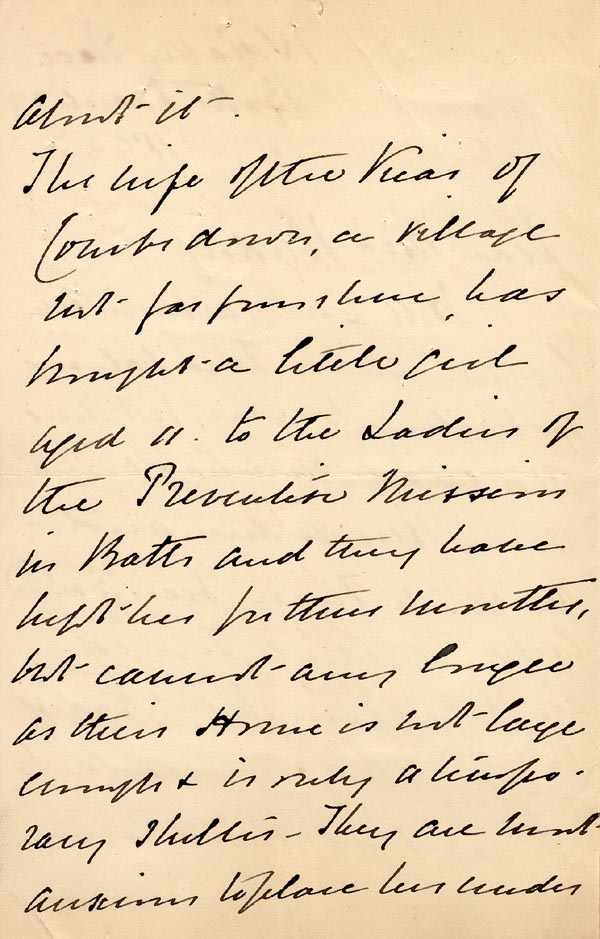 about it.
The wife of the Vicar of
Combe down, a village
not far from here, has
brought a little girl
aged 11. to the Ladies of
the Preventive Mission
in Bath and they have
kept her for three months,
but cannot any longer
as their Home is not large
enough & is only a tempo-
rary Shelter - They are most
anxious to place her under